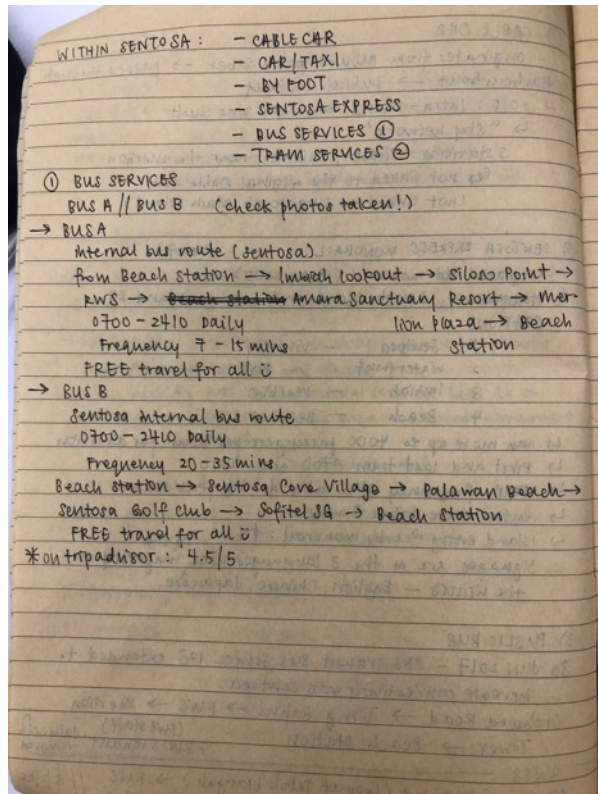 WITHIN SENTOSA : - CABLE CAR
- CAR/TAXI
- BY FOOT
- SENTOSA EXPRESS
- BUS SERVICES ①
- TRAM SERVICES ②
① BUS SERVICES
BUS A // BUS B (check photos taken!)
→ BUS A
internal bus route (sentosa)
from Beach Station → Imbiah lookout → Siloso Point →
RWS → Beach Station Amara Sanctuary Resort → Mer-
0700 - 2410 Daily lion plaza → Beach
Frequency 7 - 15 mins Station
FREE travel for all
→ BUS B
Sentosa internal bus route
0700 - 2410 Daily
Frequency 20 - 35 mins
Beach station → Sentosa Cove Village → Palawan Beach →
Sentosa Golf club → Sofitel SG → Beach Station
FREE travel for all
* on tripadvisor : 4.5/5